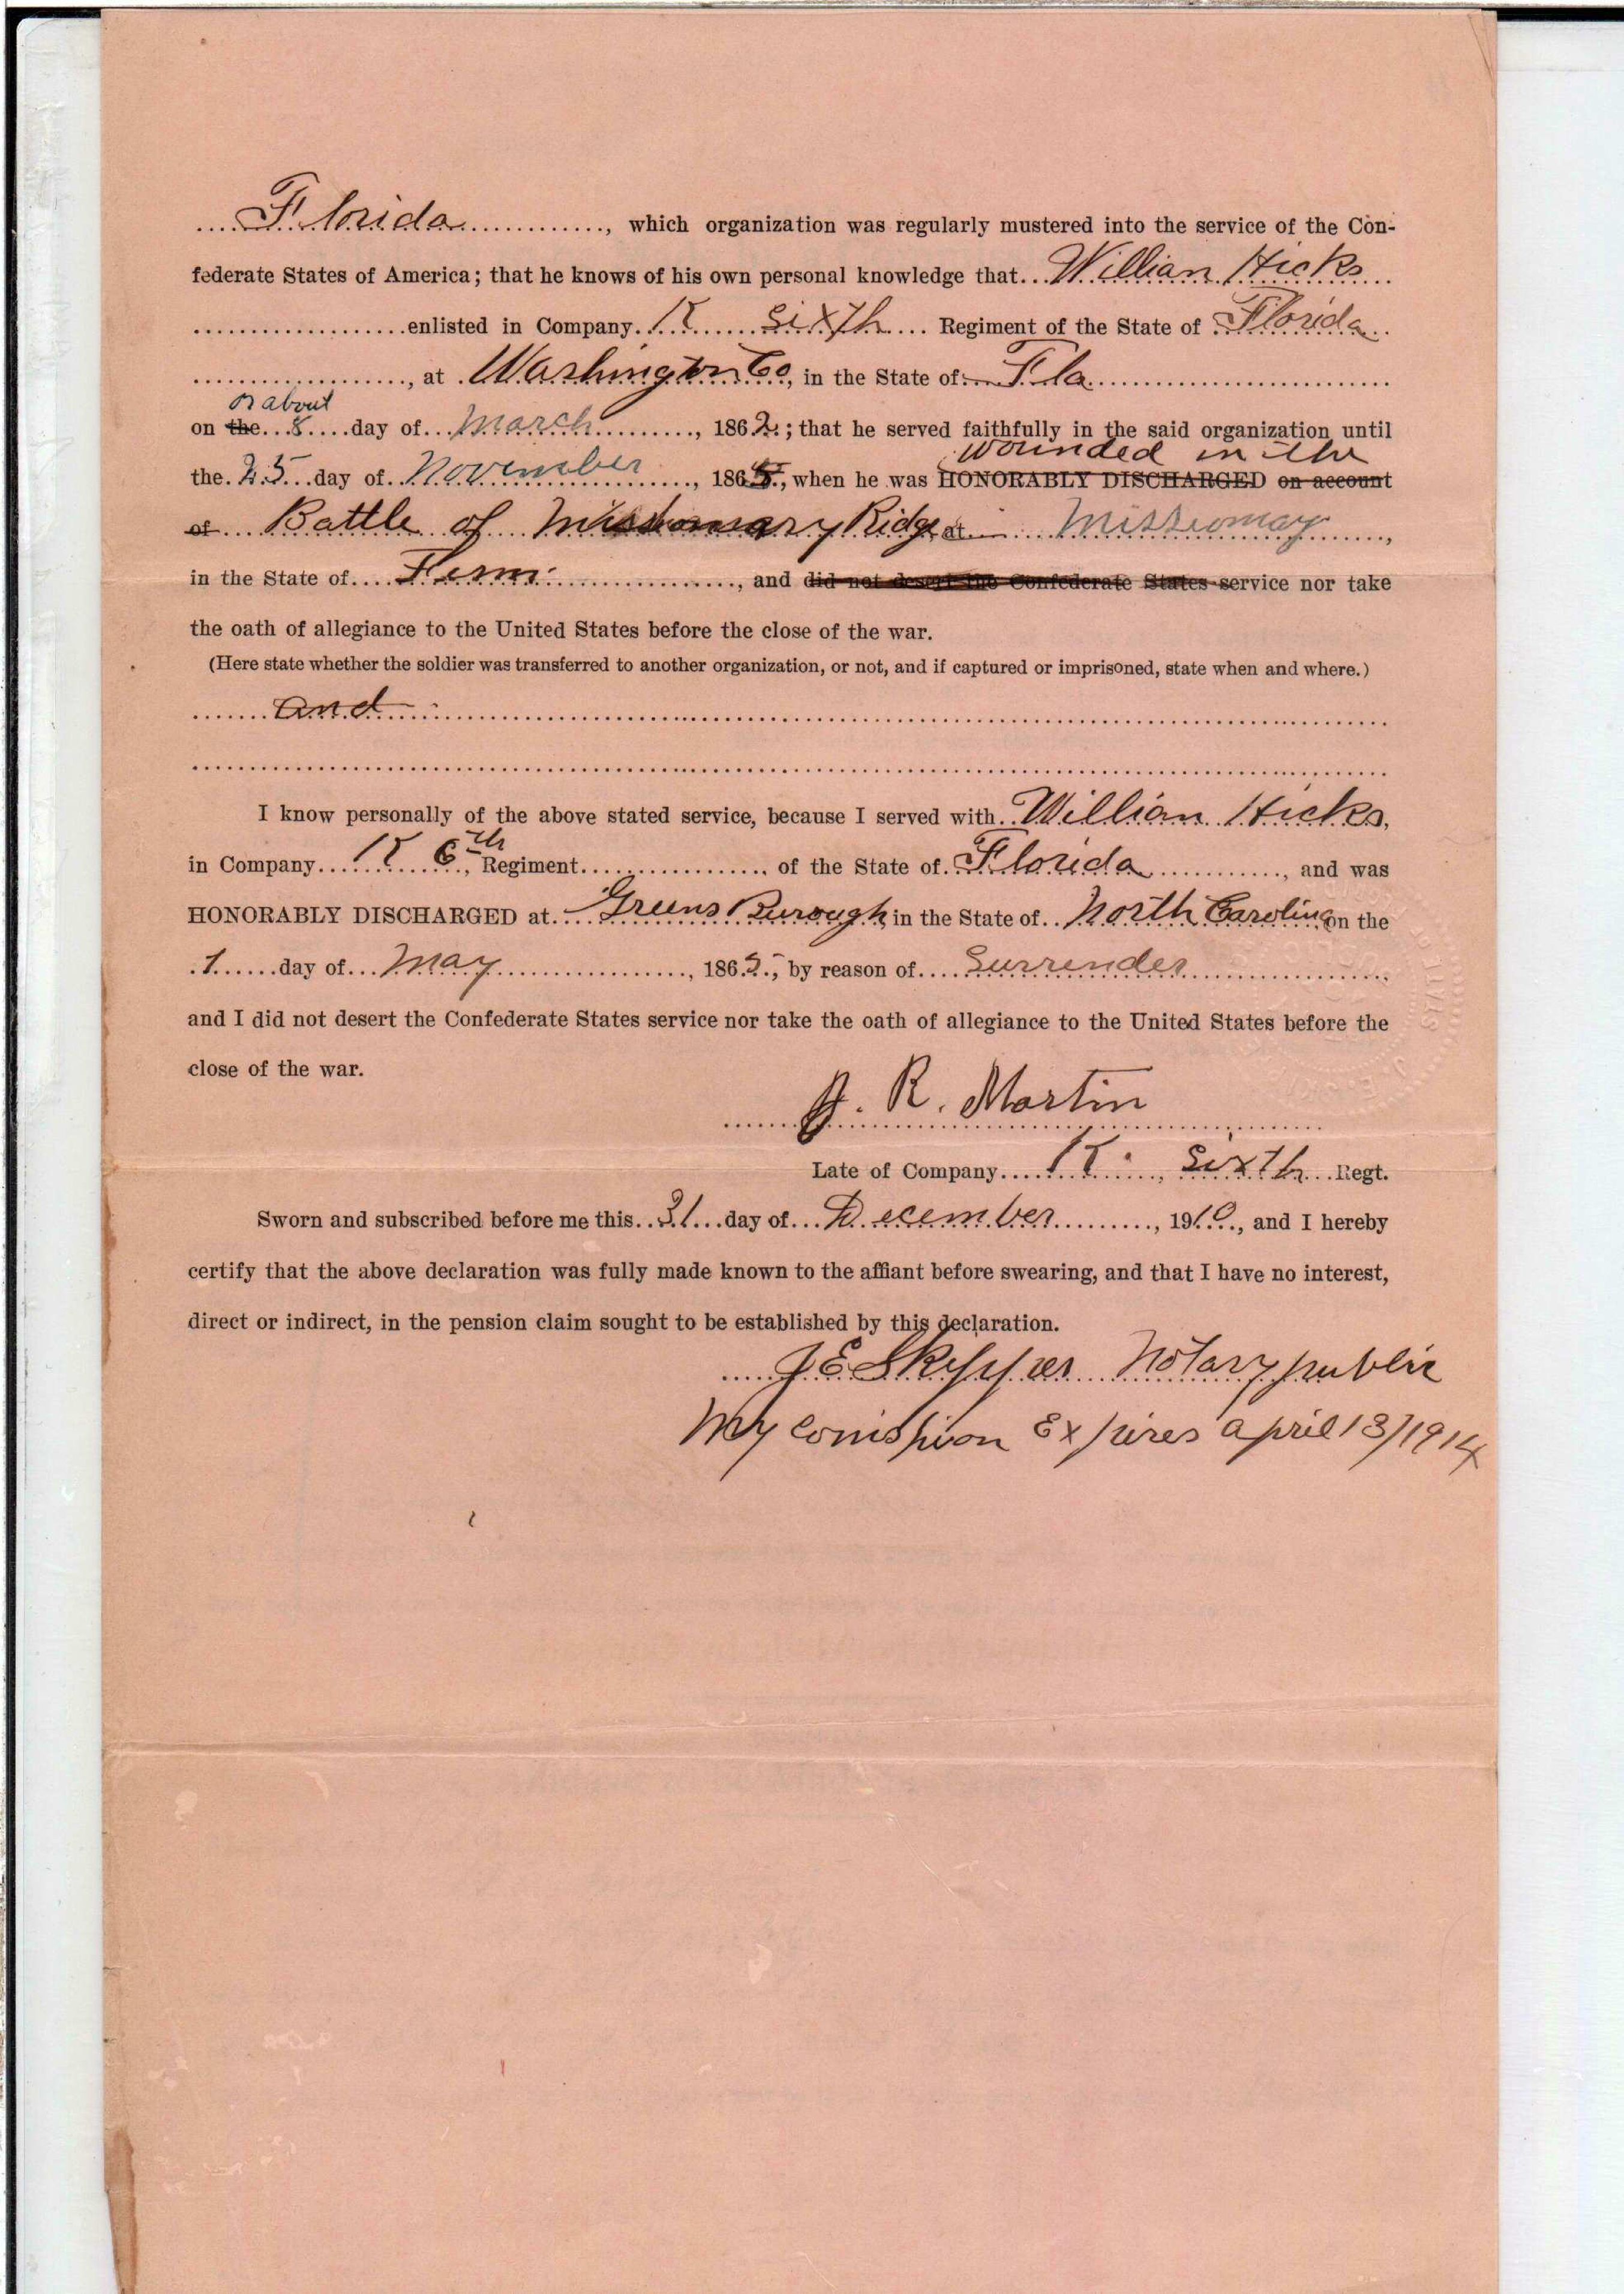 Florida, which organization was regularly mustered into the service of the Con-
federate States of America; that he knows of his own personal knowledge that Willian Hicks
enlisted in Company K sixth Regiment of the State of Florida
, at Washington Co, in the State of Fla
or about
on the 8 day of March, 1862; that he served faithfully in the said organization until
wounded in the
the 25 day of November, 186, when he was HONORABLY DISCHARGED on account
of Battle of Missionary Ridge at Missiomay,
in the State of, and did not desert the Confederate States service nor take
the oath of allegiance to the United States before the close of the war.
(Here state whether the soldier was transferred to another organization, or not, and if captured or imprisoned, state when and where.)
and
I know personally of the above stated service, because I served with Willian Hicks,
in Company K 6th, Regiment of the State of Florida, and was
HONORABLY DISCHARGED at Greens Burough, in the State of North Carolina on the
1 day of May, 1865, by reason of Surrender
and I did not desert the Confederate States service nor take the oath of allegiance to the United States before the
close of the war.
R. Martin
Late of Company K, sixth Regt.
Sworn and subscribed before me this 31 day of December, 1910, and I hereby
certify that the above declaration was fully made known to the affiant before swearing, and that I have no interest,
direct or indirect, in the pension claim sought to be established by this declaration.
J E Skipper Notary public
My Expires april 13/1914